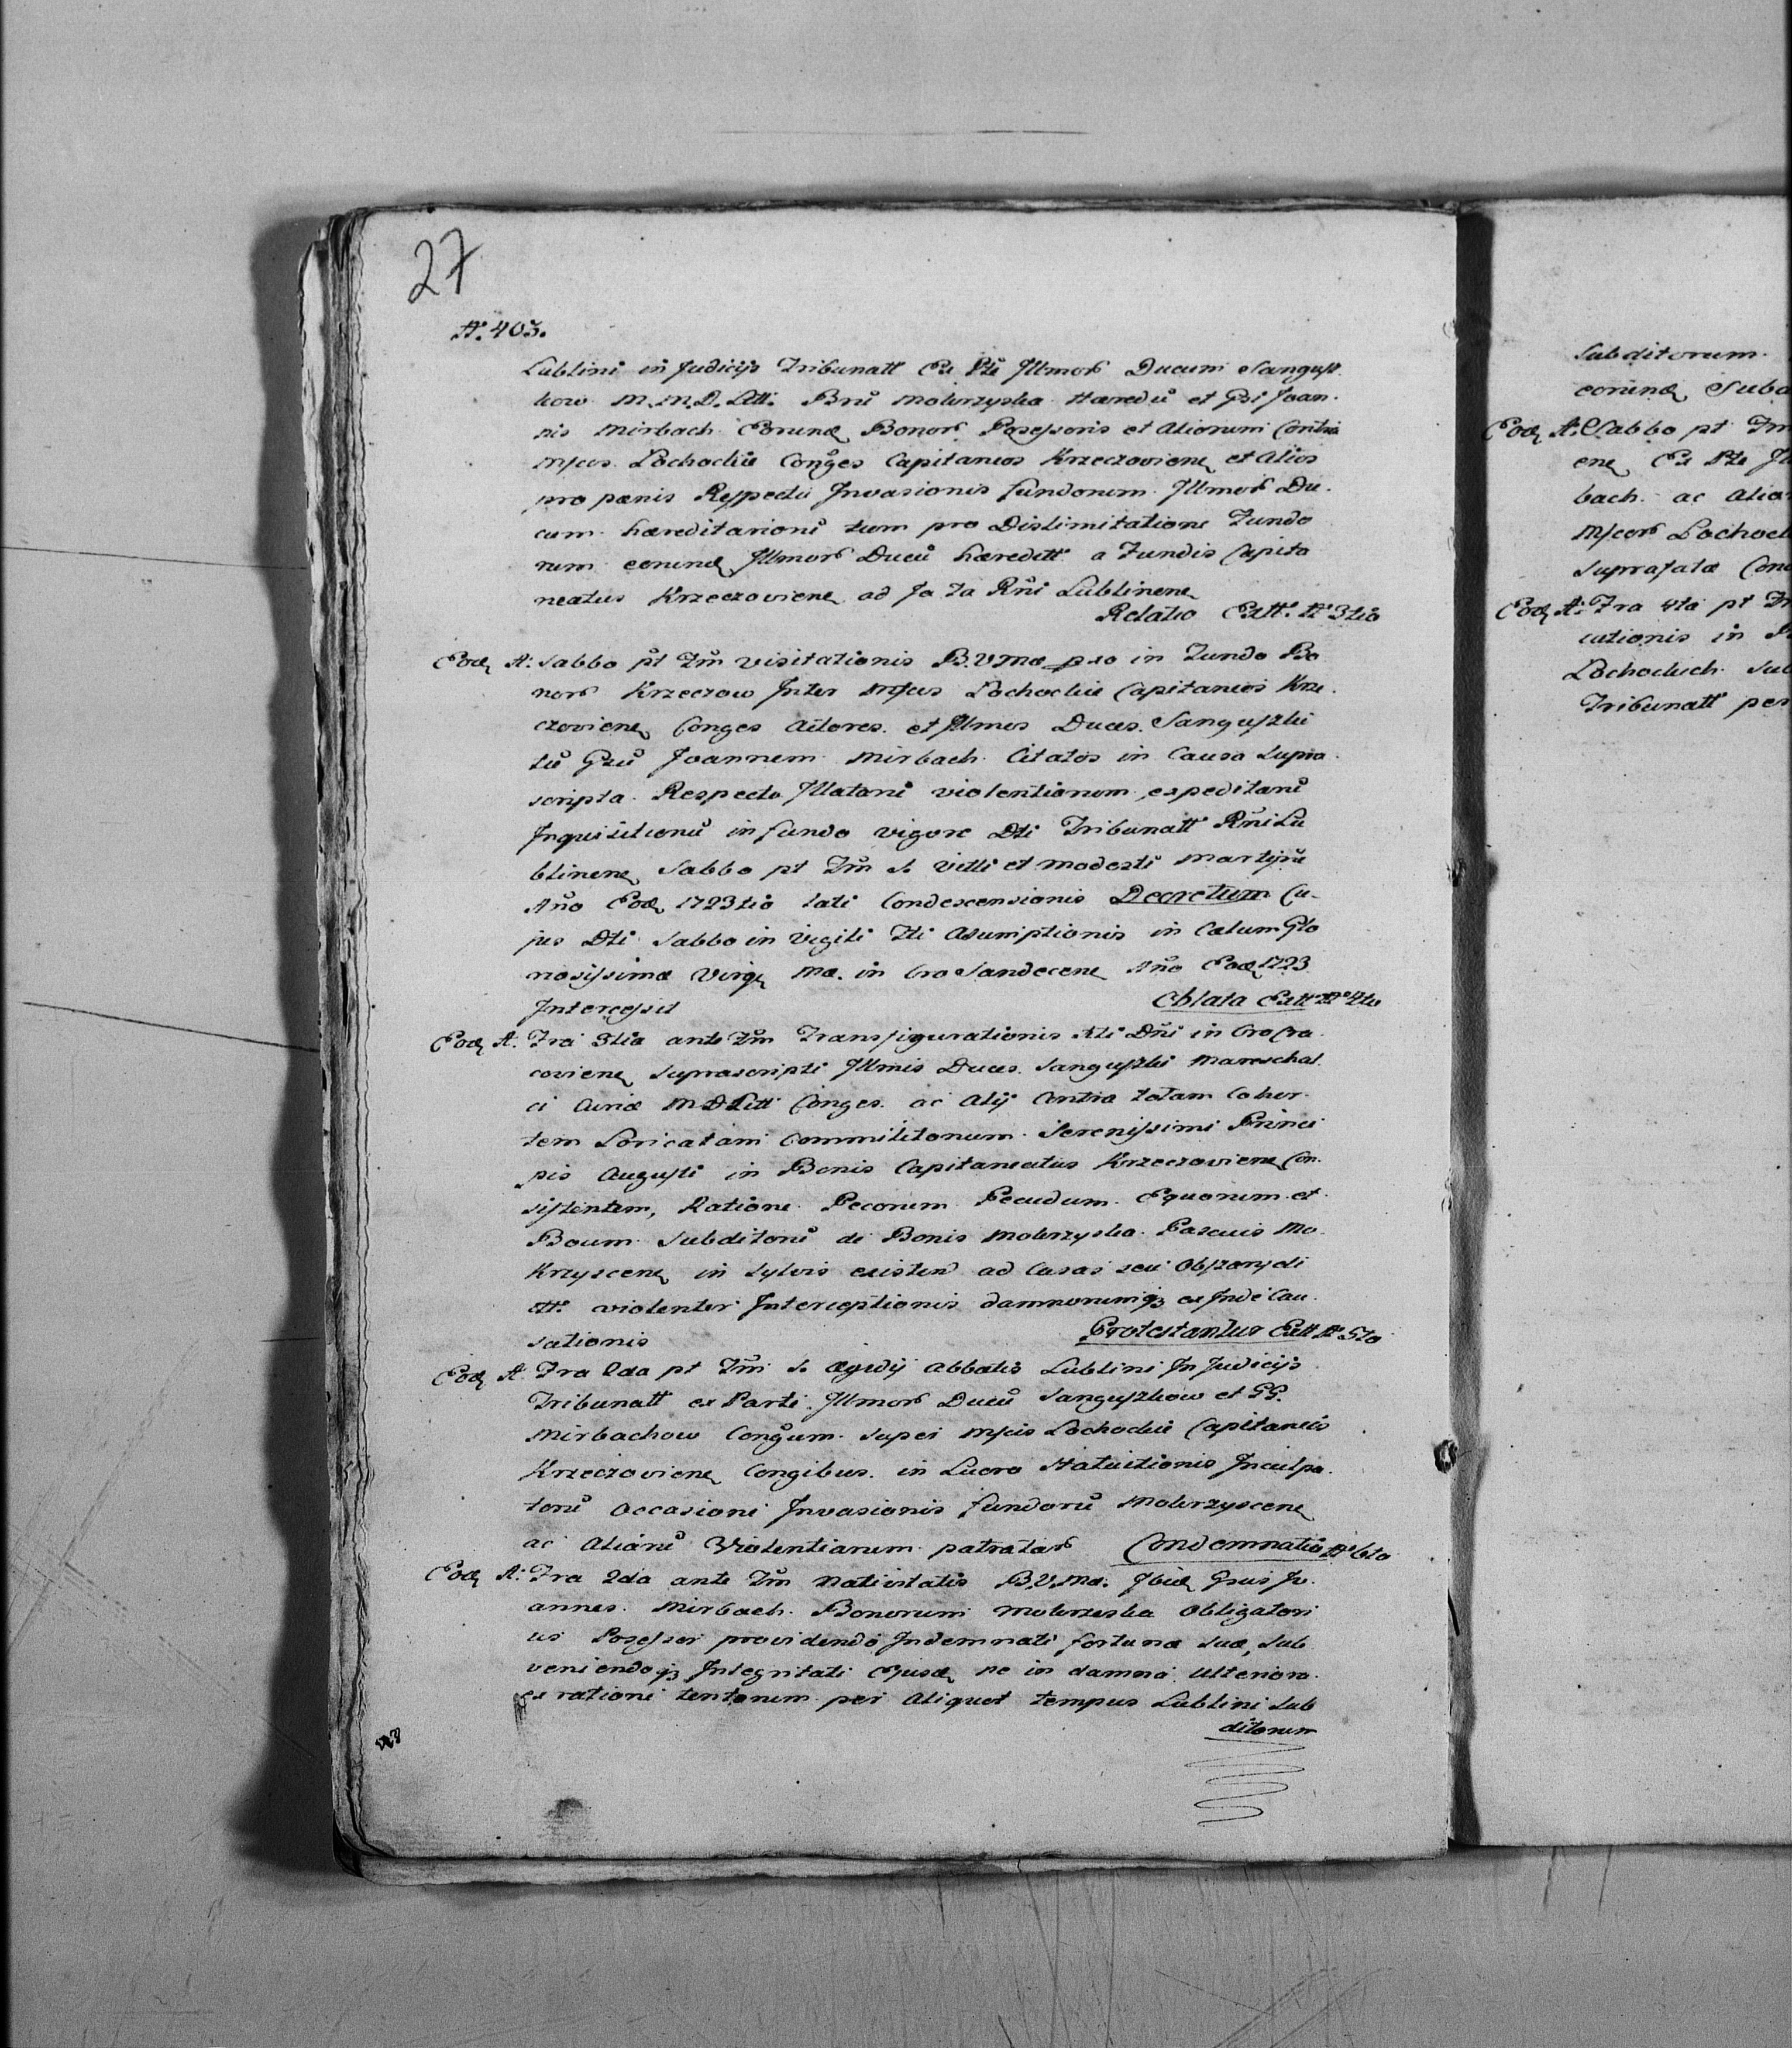 27
N. 403.
Lublini in Judicijs Tribunall Ex Pte Illmor Ducum Sangusz
kow M. M. D. Litt. Bnŭ Mokrzyska Haeredŭ et Gsi Joan.
nis Mirbach Eorund Bonor Possessoris et Aliorum Contra
Mfcos Lochockie Conges Capitaneos Krzeczoviens et Alios
pro paenis Respectu Invasionis fundorum Illmor Du.
cum haereditariorŭ tum pro Dislimitatione Fundo
rum eorund Illmor Ducŭ haeredit a Fundis Capita
neatus Krzeczoviens ad Ja Ta Rni Lublinens
Relatio Extt. N 3tio
Eod A. Sabbo pt Fm Visitationis B. V. Mae pro in Fundo Bo
nor Krzeczow Inter Mfcos Lochockie Capitaneos Krze.
czoviens Conges Actores et Illmos Duces Sanguszki
tŭ Gsŭ Joannem Mirbach Citatos in Causa Supra
scripta Respectu Illatarŭ violentiarum expeditarŭ
Inquisitionŭ in fundo vigore Dti Tribunall Rni Lu
blinens Sabbo pt Fm S. Vitti et Modesti Martyrŭ
Ano Eod 1723tio lati Condescensionis Decretum Cu-
jus Dti Sabbo in Vigili Fti Asumptionis in Caelum Glo
riosissimae Virg Mae. in Cro Sandecens Ano Eod 1723
Intercessit Oblata Extt N 4to
Eod A. Fra 3tia ante Fm Transfigurationis Xti Dni in Cro Cra
coviens Suprascripti Illmis Duces Sanguszki Mareschal.
ci Curiae M D Litt Conges. ac Alij Contra totam Cohor.
tem Loricatam Commilitonum Serenissimi Princi
pis Augusti in Bonis Capitaneatus Krzeczoviens Con.
sistentem, Ratione Pecorum Pecudum Equorum et
Boum Subditorŭ de Bonis Mokrzyska Pascuis Mo.
Krzyscens in Sylvis existen ad Casas seu Obszary di
ctt. violenter Interceptionis damnorumq ex Inde Cau
sationis Protestantur Extt N 5to
Eod A. Fra 2da pt Fm S. Aegidij Abbatis Lublini In Judicijs
Tribunall ex Parte Illmor Ducŭ Sanguszkow et GG.
Mirbachow Congum super Mfcis Lochockie Capitaneis
Krzeczoviens Congibus in Lucro Statuitionis Inculpa.
torŭ Occasione Invasionis fundorŭ Mokrzyscens
ac Aliarŭ Violentiarum patratar Condemnatio N 6to
Eod A. Fra 2da ante Fm Nativitatis B. V. Mae. Ibid Gsus Jo.
annes Mirbach Bonorum Mokrzeska Obligatori
us Possessor providendo Indemnati fortunae suae, Sub
veniendoq Integritati Ejusd ne in damna Ulteriora
ex ratione tentorum per Aliquot tempus Lublini Sub
ditorum
Subditorum
eorund Subd
Eod A. Sabbo pt Fm
ens Ex Pte Ill
bach ac Alio
Mfcor Lochock
Suprafatae Con
Eod A. Fra 4ta pt Fm
cutionis in
Lochockich Sub
Tribunall per